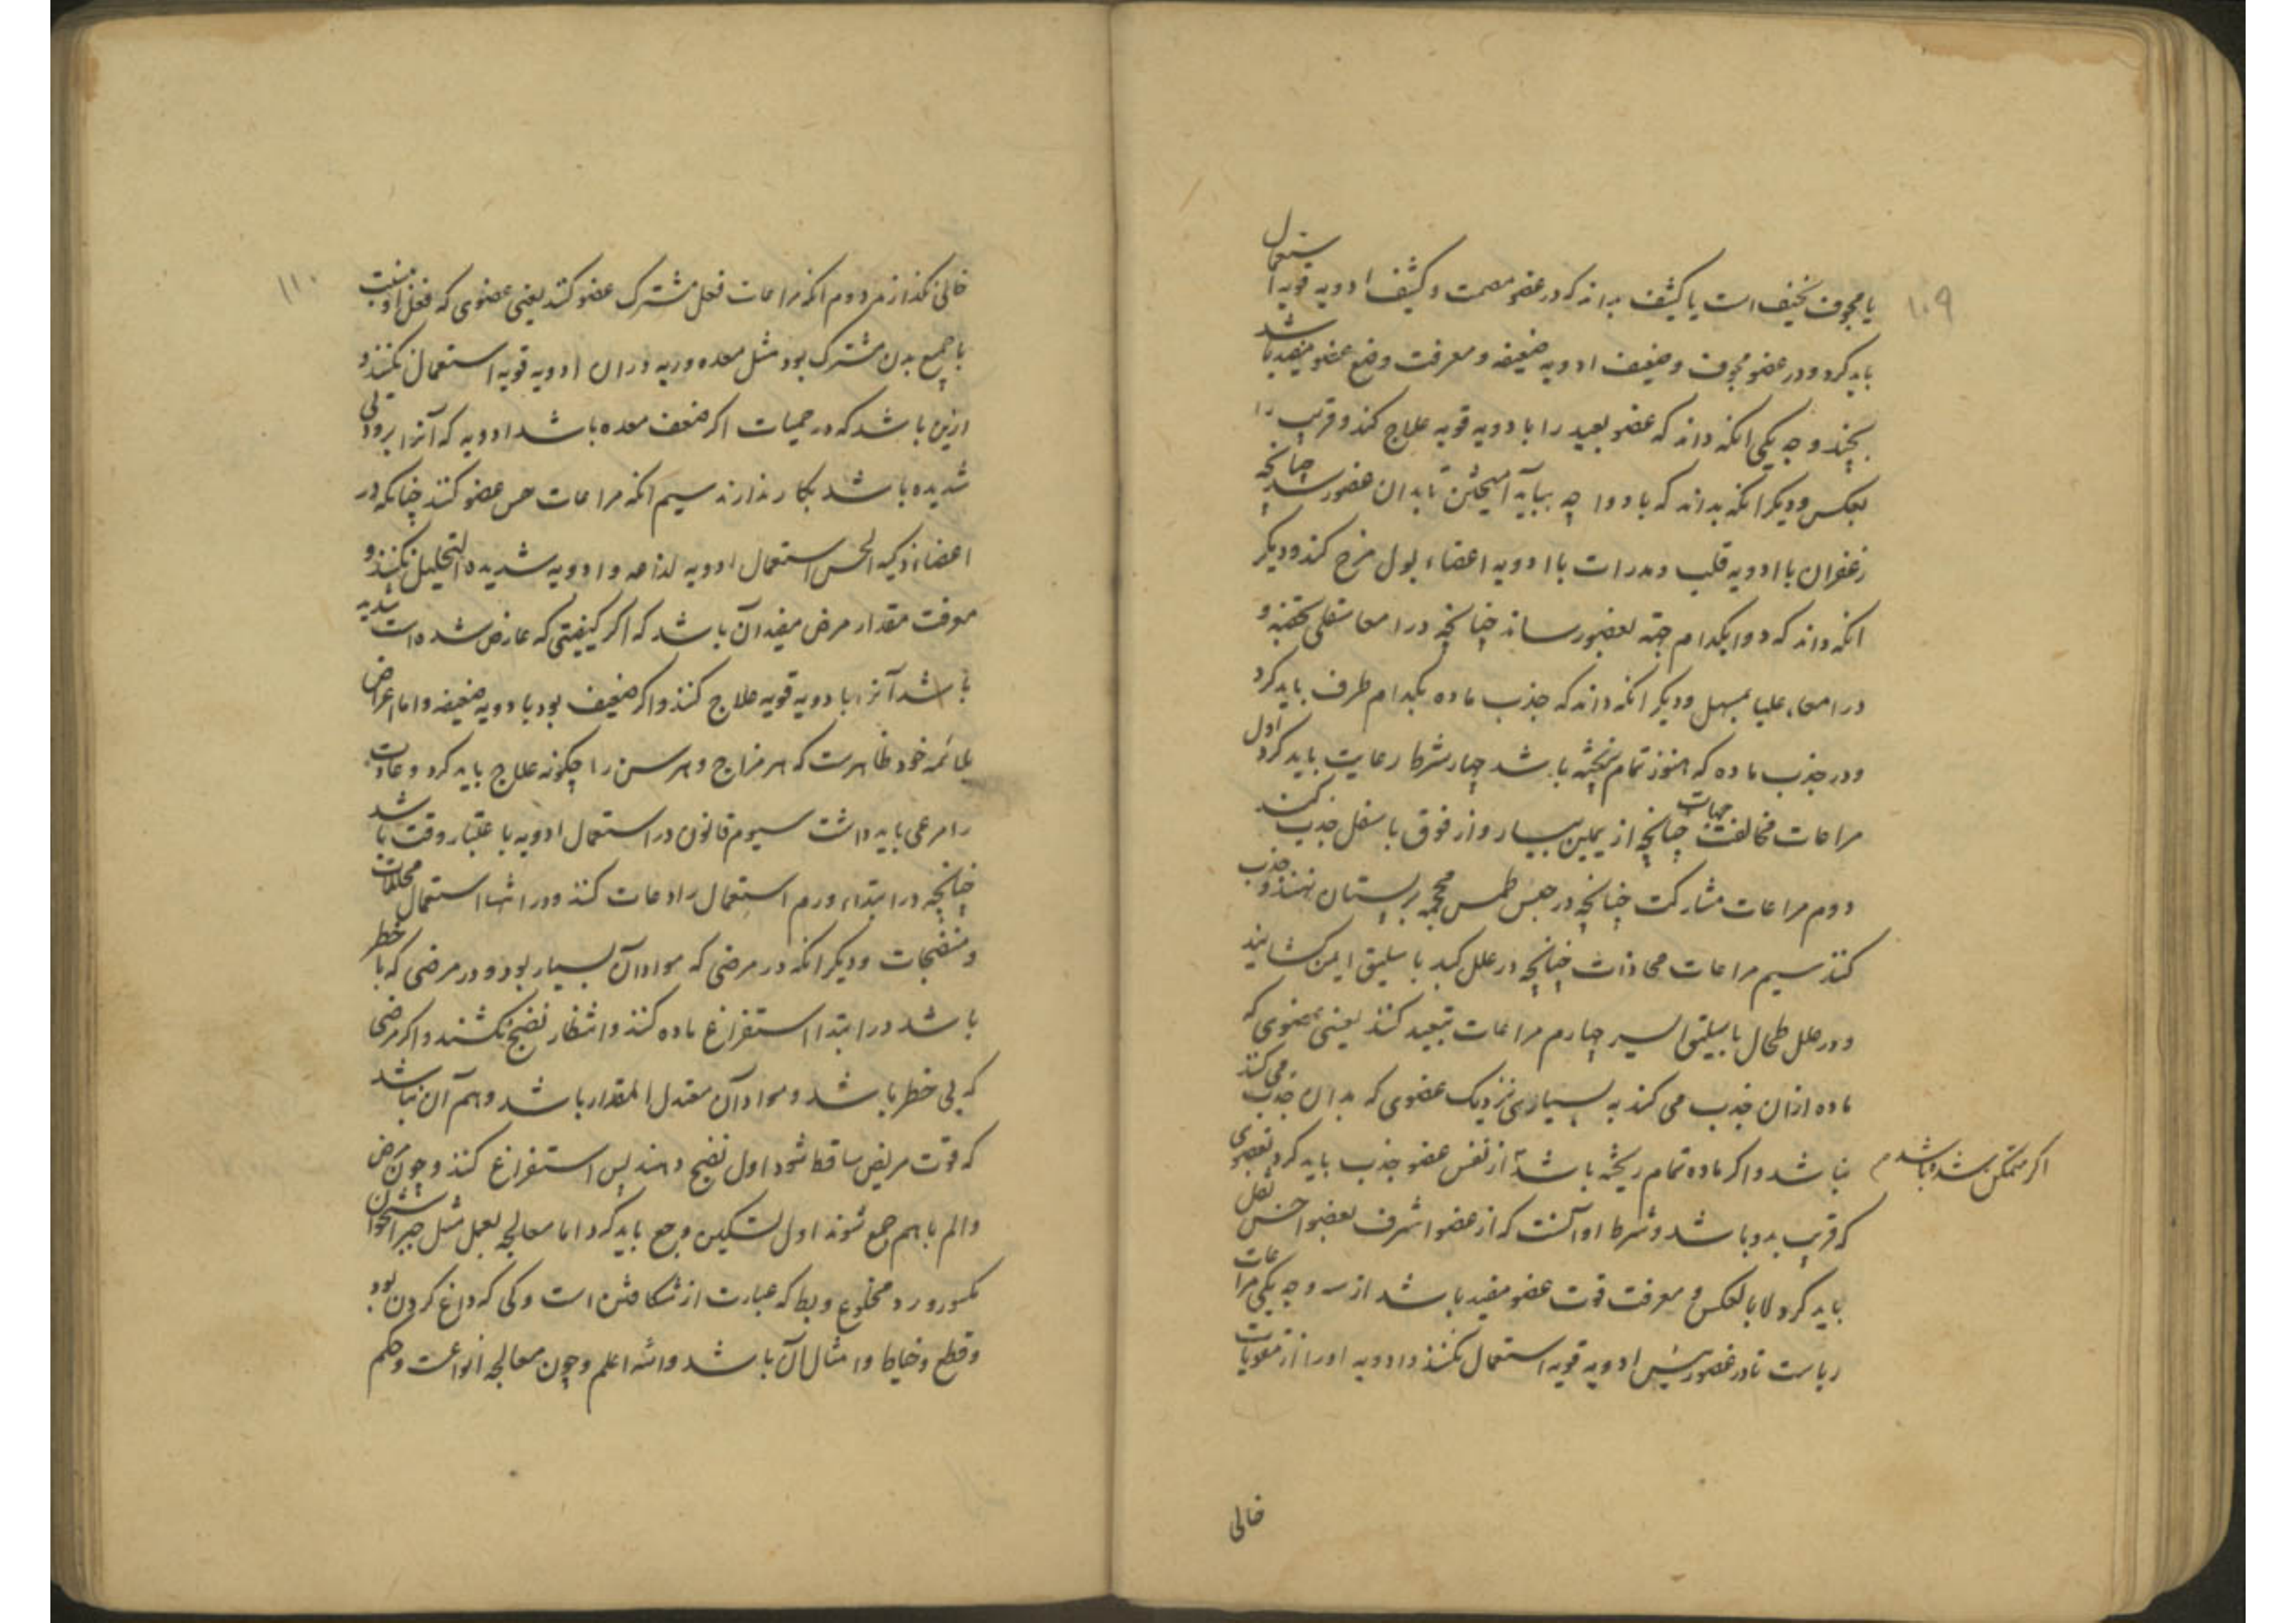 ۱۰۹
یا مجوف نحیف است یا کثیف بداند که در عضو مصمت و کثیف ادویه قویه استعمال
باید کرد و در عضو مجوف و ضعیف ادویه ضعیفه و معرفت وضع عضو مفید باشد
بچند وجه یکی انکه داند که عضو بعید را با دویه قویه علاج کند و قریب را
بعکس و دیکر انکه بداند که با دوا چه بباید آمیختن تا بدان عضو رسد چنانچه
زعفران با ادویه قلب و مدرات با ادویه اعضاء بول مزج کند و دیکر
انکه داند که دوا بکدام جهة بعضو رساند چنانچه در امعا سفلی بحقنه و
در امعاء علیا بمسهل و دیکر انکه داند که جذب ماده بکدام طرف باید کرد
و در جذب ماده که هنوز تمام نریخته باشد چهار شرط رعایت باید کرد اول
مراعات مخالفت جهات چنانچه از یمین بیسار و از فوق باسفل جذب کنند
دوم مراعات مشارکت چنانچه در حبس طمس محجمه بر پستان نهند و جذب
کنند سیم مراعات محاذات چنانچه در علل کبد باسلیق ایمن کشایند
و در علل طحال باسلیق ایسر چهارم مراعات تبعید کنند یعنی عضوی که
ماده ازان جذب می کنند به بسیاری نزدیک عضوی که بدان جذب می کنند
نباشد و اکر ماده تمام ریخته باشد از نفس عضو جذب باید کرد بعضوی
اکر متمکن نشده باشد م
که قریب بدو باشد و شرط او آنست که از عضو اشرف بعضو اخس نقل
باید کرد لا بالعکس و معرفت قوت عضو مفید باشد از سه وجه یکی مراعات
ریاست تا در عضو رئیس ادویه قویه استعمال نکنند و ادویه او را از مقویات
خالی
۱۱۰
خالی نکذارند دوم انکه مراعات فعل مشترک عضو کنند یعنی عضوی که فعل او نسبت
با جمیع بدن مشترک بود مثل معده و ریه دران ادویه قویه استعمال نکنند و
ازین باشد که در حمیات اکر ضعف معده باشد ادویه که آنرا برودتی
شدیده باشد بکار ندارند سیم انکه مراعات حس عضو کنند چنانکه در
اعضاء ذکیه الحس استعمال ادویه لذاعه و ادویه شدیده التحلیل نکنند و
معرفت مقدار مرض مفید آن باشد که اکر کیفیتی که عارض شده است شدید
باشد آنرا با دویه قویه علاج کنند و اکر ضعیف بود با دویه ضعیفه و اما اعراض
ملائمه خود ظاهرست که هر مزاج و هر سن را چکونه علاج باید کرد و عادت
را مرعی باید داشت سیوم قانون در استعمال ادویه باعتبار وقت باشد
چنانچه در ابتداء ورم استعمال رادعات کنند و در انتها استعمال محللات
و منضجات و دیکر انکه در مرضی که مواد آن بسیار بود و در مرضی که با خطر
باشد در ابتدا استفراغ ماده کنند و انتظار نضج نکشند و اکر مرضی
که بی خطر باشد و مواد آن معتدل المقدار باشد و بیم آن نباشد
که قوت مریض ساقط شود اول نضج دهند پس استفراغ کنند و چون مرض
و الم باهم جمع شوند اول تسکین وجع باید کرد اما معالجه بعمل مثل جبر استخوان
مکسور و رد مخلوع و بط که عبارت از شکافتن است و کی که داغ کردن بود
و قطع و خیاطا و امثال آن باشد والله اعلم و چون معالجه انواعست و حکم